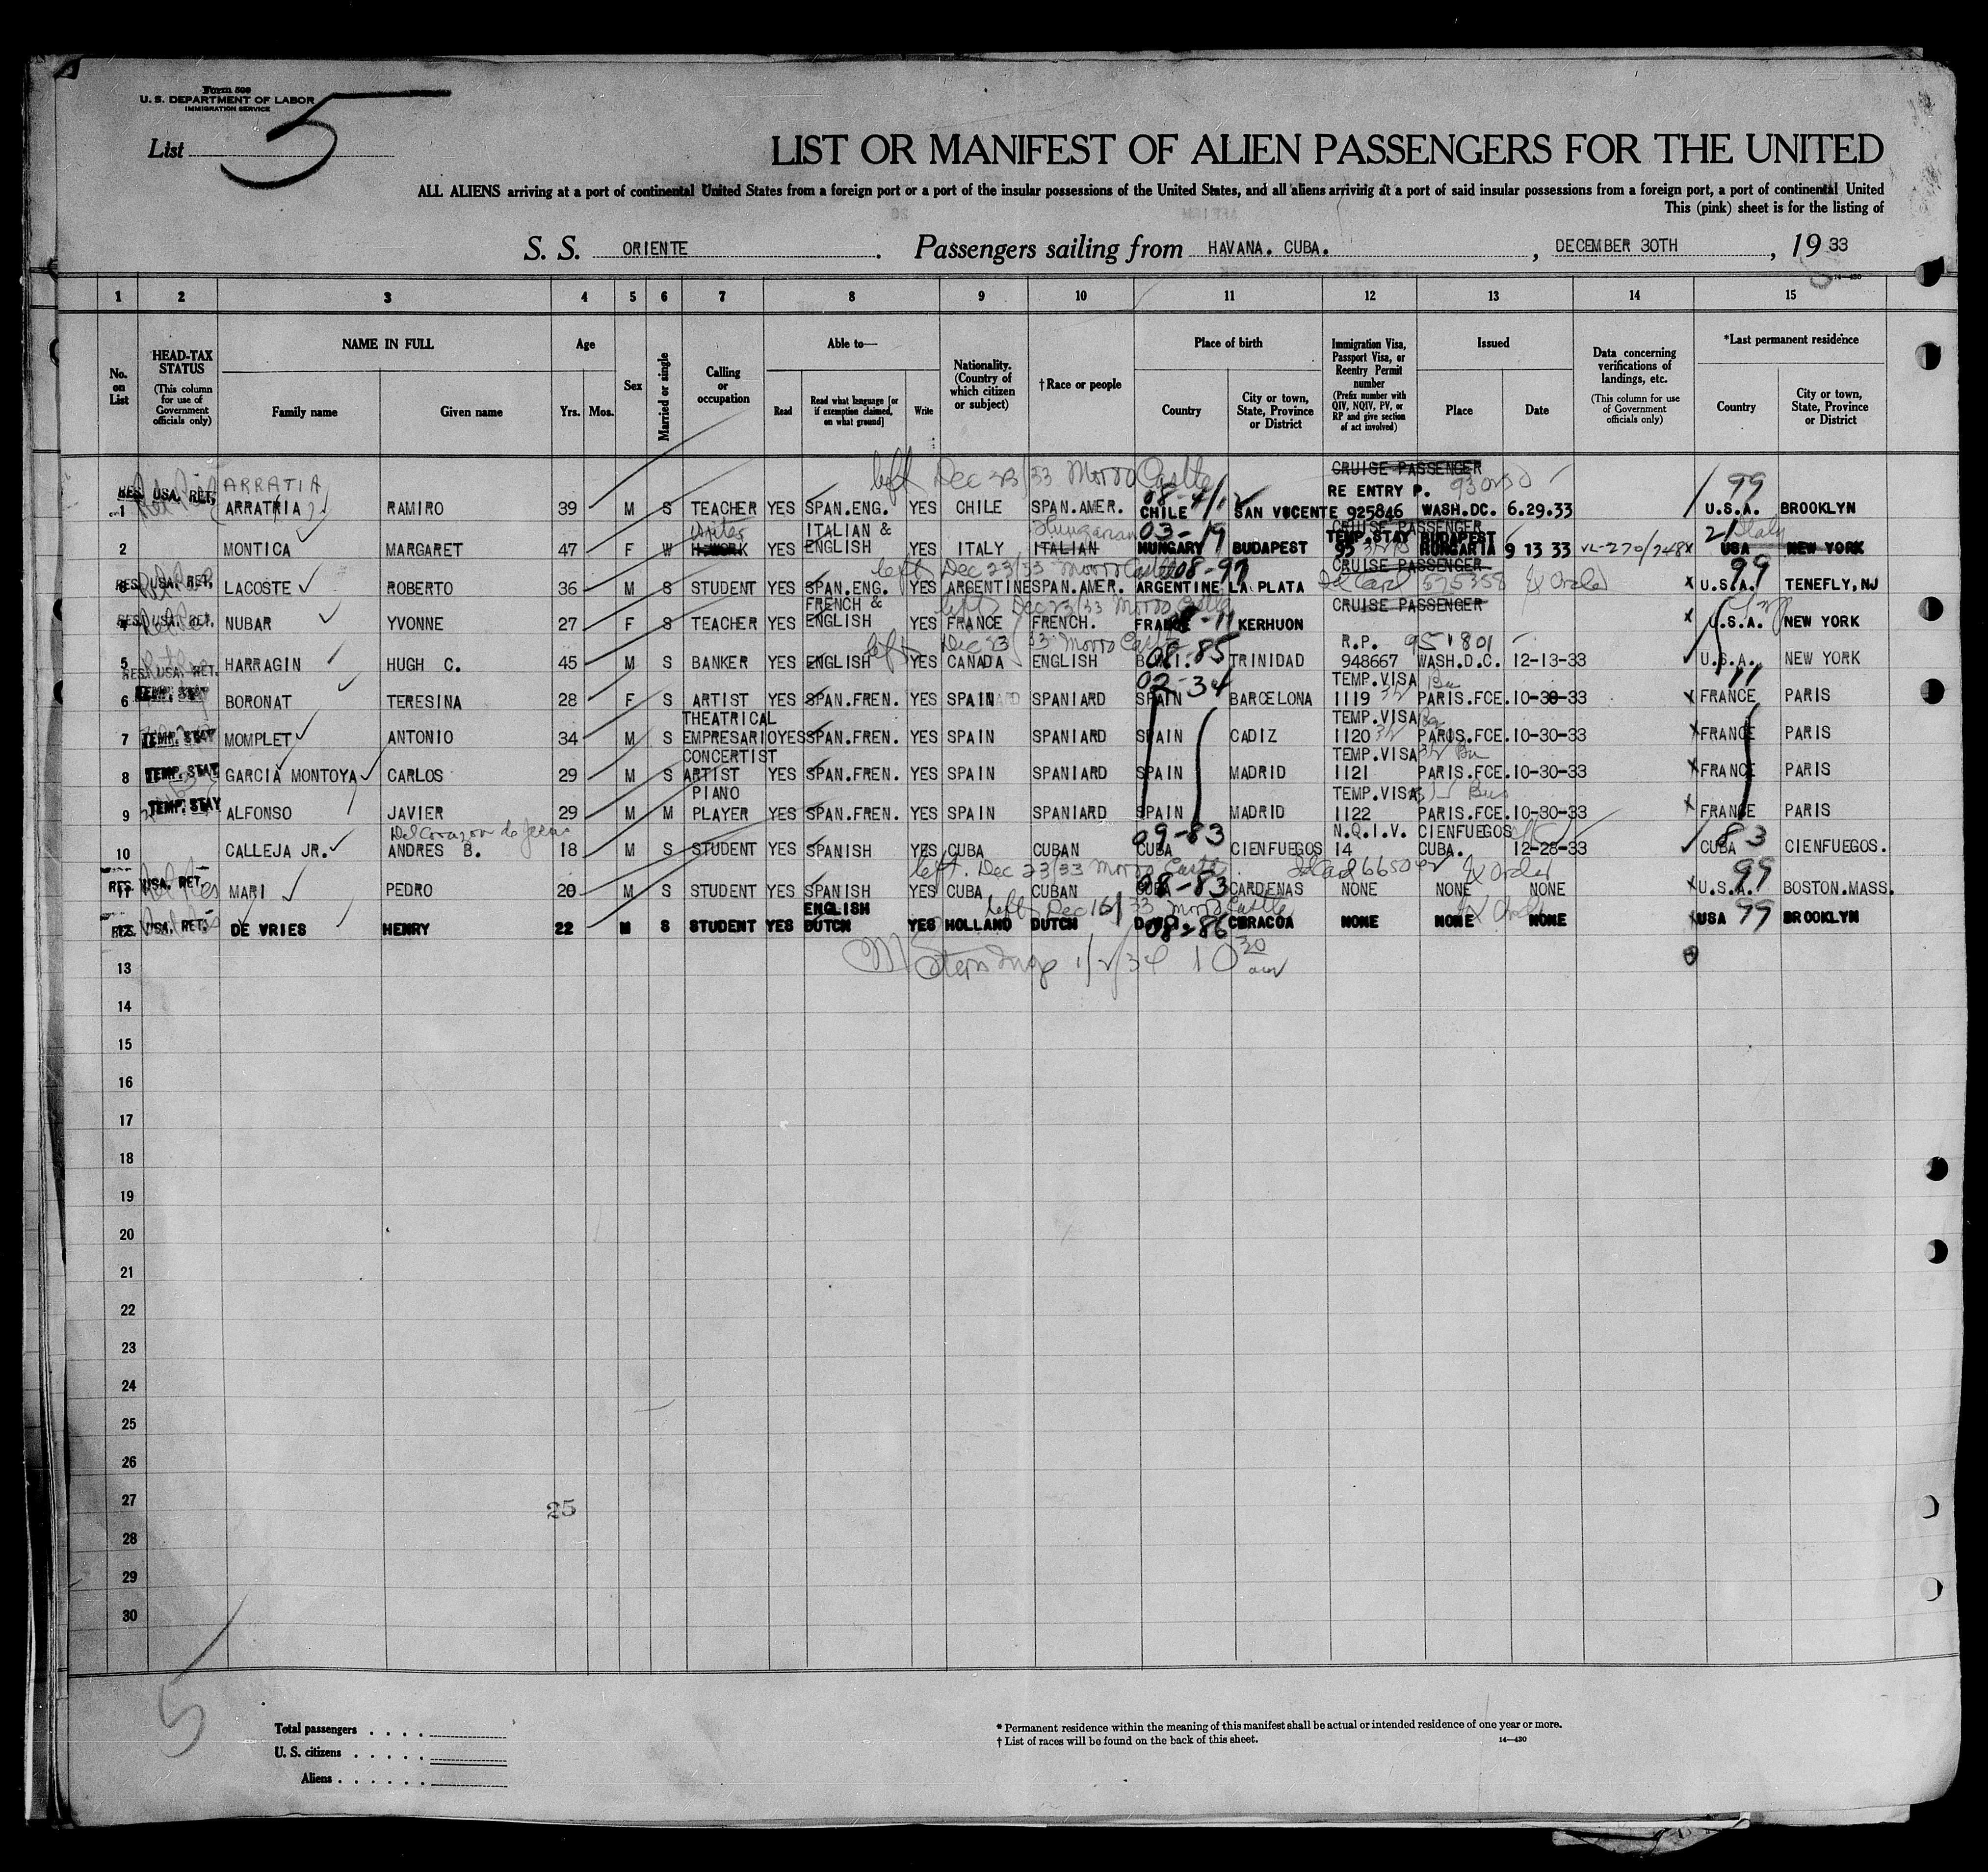 Form 500
U. S. DEPARTMENT OF LABOR
IMMIGRATION SERVICE
List 5
LIST OR MANIFEST OF ALIEN PASSENGERS FOR THE UNITED
ALL ALIENS arriving at a port of continental United States from a foreign port or a port of the insular possessions of the United States, and all aliens arriving at a port of said insular possessions from a foreign port, a port of continental United
This (pink) sheet is for the listing of
S. S. ORIENTE. Passengers sailing from HAVANA. CUBA., DECEMBER 30TH, 19 33
14—430
1 2 3 4 5 6 7 8 9 10 11 12 13 14 15
No. on List
HEAD-TAX STATUS (This column for use of Government officials only)
NAME IN FULL
Family name Given name
Age
Yrs. Mos.
Sex
Married or single
Calling or occupation
Able to—
Read Read what language [or if exemption claimed, on what ground] Write
Nationality. (Country of which citizen or subject)
† Race or people
Place of birth
Country City or town, State, Province or District
Immigration Visa, Passport Visa, or Reentry Permit number (Prefix number with QIV, NQIV, PV, or RP and give section of act involved)
Issued
Place Date
Data concerning verifications of landings, etc. (This column for use of Government officials only)
*Last permanent residence
Country City or town, State, Province or District
left Dec 23/33 Morro Castle CRUISE PASSENGER
ARRATIA RE ENTRY P. 99
1 RES. USA. RET. ARRATRIA RAMIRO 39 M S TEACHER YES SPAN.ENG. YES CHILE SPAN.AMER. CHILE SAN VUCENTE 925846 WASH.DC. 6.29.33 U.S.A. BROOKLYN
Writer ITALIAN & Hungarian 03-19 CRUISE PASSENGER TEMP.STAY BUDAPEST 21 Italy
2 MONTICA MARGARET 47 F W H.WORK YES ENGLISH YES ITALY ITALIAN HUNGARY BUDAPEST 95 HUNGARIA 9 13 33 VL-270/248 USA NEW YORK
left Dec 23/33 Morro Castle 08-97 CRUISE PASSENGER 99
3 RES. USA. RET. LACOSTE ROBERTO 36 M S STUDENT YES SPAN.ENG. YES ARGENTINE SPAN.AMER. ARGENTINE LA PLATA 525358 U.S.A. TENEFLY, NJ
FRENCH & left Dec 23/33 Morro Castle CRUISE PASSENGER
4 RES. USA. RET. NUBAR YVONNE 27 F S TEACHER YES ENGLISH YES FRANCE FRENCH. FRANCE KERHUON U.S.A. NEW YORK
left Dec 23/33 Morro Castle 08-85 R.P.
5 RES. USA. RET. HARRAGIN HUGH C. 45 M S BANKER YES ENGLISH YES CANADA ENGLISH B.W.I. TRINIDAD 948667 WASH.D.C. 12-13-33 U.S.A. NEW YORK
02-34 TEMP.VISA 11
6 TEMP. STAY BORONAT TERESINA 28 F S ARTIST YES SPAN.FREN. YES SPAIN SPANIARD SPAIN BARCELONA 1119 PARIS.FCE. 10-30-33 FRANCE PARIS
THEATRICAL TEMP.VISA
7 TEMP. STAY MOMPLET ANTONIO 34 M S EMPRESARIO YES SPAN.FREN. YES SPAIN SPANIARD SPAIN CADIZ 1120 PARIS.FCE. 10-30-33 FRANCE PARIS
CONCERTIST TEMP.VISA
8 TEMP. STAY GARCIA MONTOYA CARLOS 29 M S ARTIST YES SPAN.FREN. YES SPAIN SPANIARD SPAIN MADRID 1121 PARIS.FCE. 10-30-33 FRANCE PARIS
PIANO TEMP.VISA
9 TEMP. STAY ALFONSO JAVIER 29 M M PLAYER YES SPAN.FREN. YES SPAIN SPANIARD SPAIN MADRID 1122 PARIS.FCE. 10-30-33 FRANCE PARIS
Del Corazon de Jesus 09-83 N.Q.I.V. CIENFUEGOS 83
10 CALLEJA JR. ANDRES B. 18 M S STUDENT YES SPANISH YES CUBA CUBAN CUBA CIENFUEGOS 14 CUBA. 12-28-33 CUBA CIENFUEGOS.
left Dec 23/33 Morro Castle 99
11 RES. USA. RET. MARI PEDRO 20 M S STUDENT YES SPANISH YES CUBA CUBAN CUBA 08-83 CARDENAS NONE NONE NONE U.S.A. BOSTON.MASS.
ENGLISH left Dec 16/33 Morro Castle
12 RES. USA. RET. DE VRIES HENRY 22 M S STUDENT YES DUTCH YES HOLLAND DUTCH 08-86 CURACOA NONE NONE NONE USA 99 BROOKLYN
1/2/34 10 30 am
13
14
15
16
17
18
19
20
21
22
23
24
25
26
27
25
28
29
30
5
Total passengers
U. S. citizens
Aliens
* Permanent residence within the meaning of this manifest shall be actual or intended residence of one year or more.
† List of races will be found on the back of this sheet.
14—430